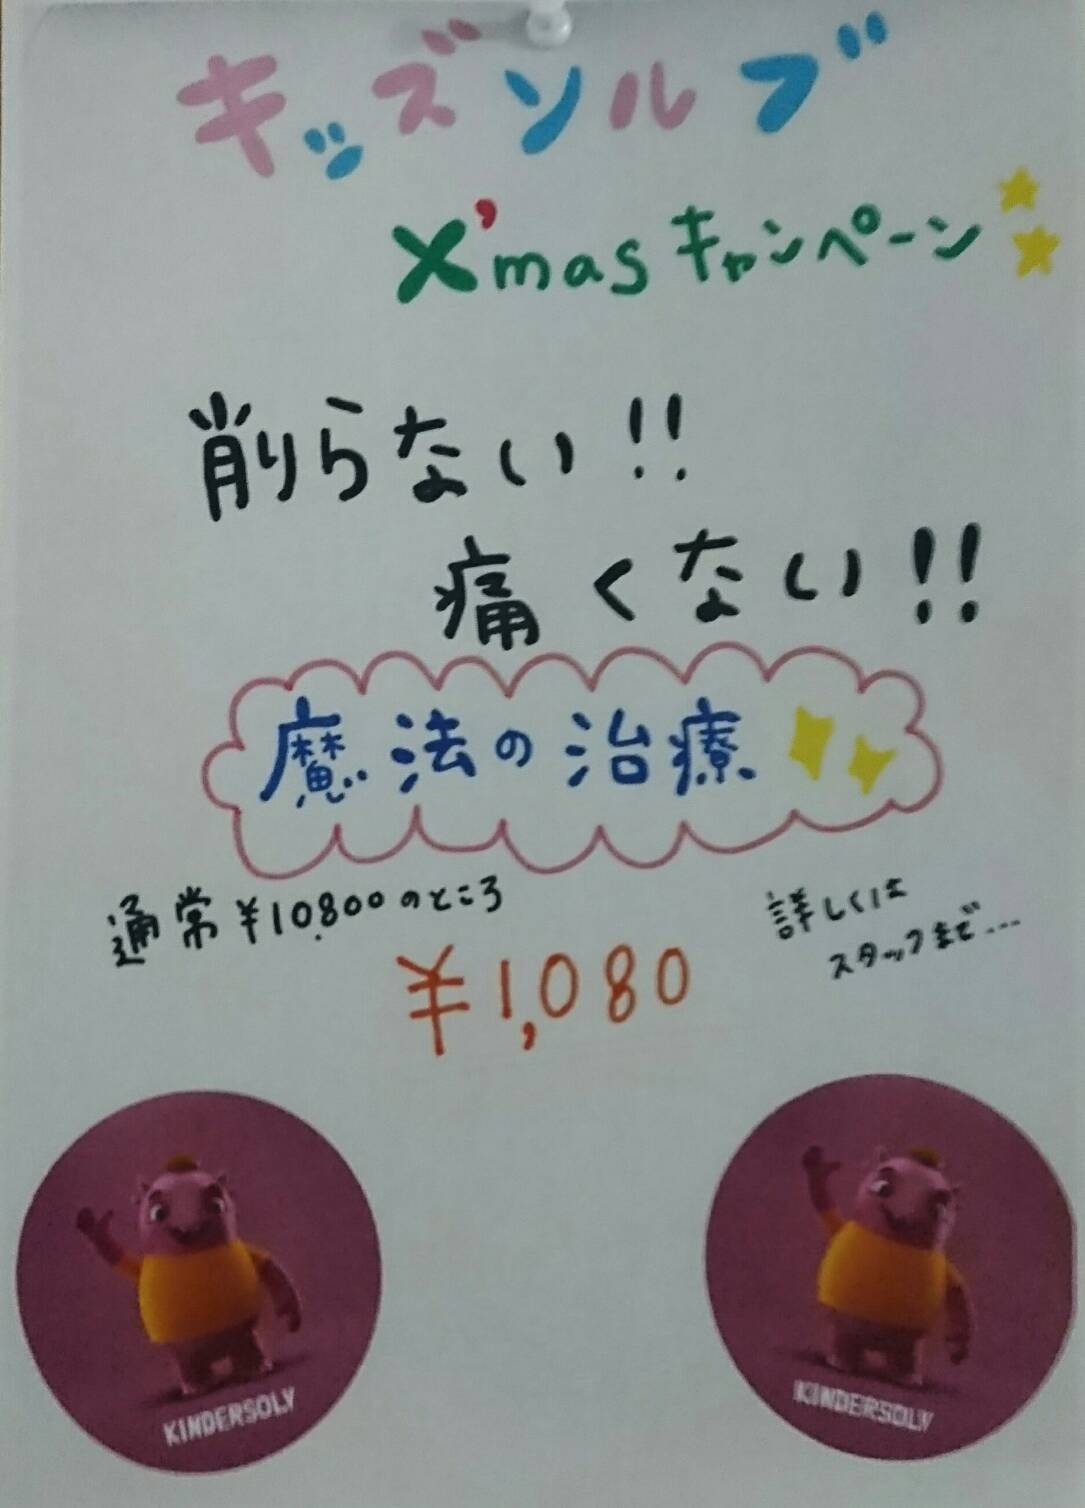 キッズソルブ
X'mas キャンペーン
削らない!!
痛くない!!
魔法の治療
通常 ¥10,800のところ
¥1,080
詳しくは
スタッフまで…
KINDERSOLV
KINDERSOLV